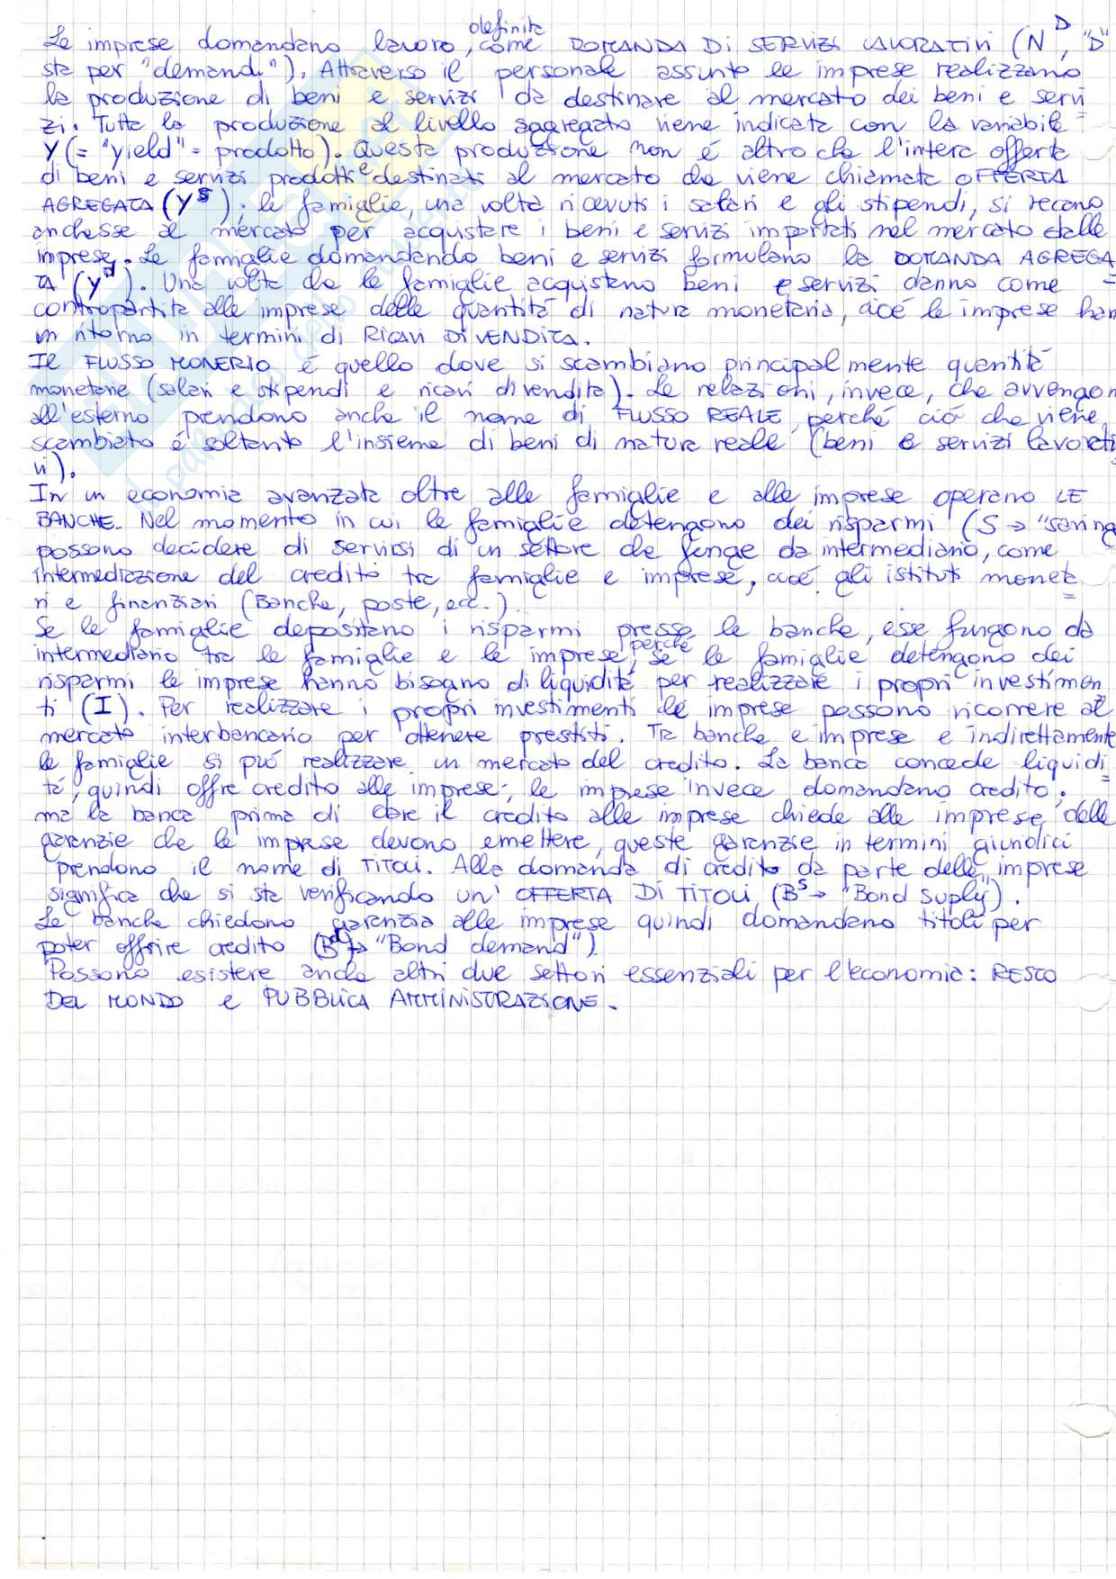 Le imprese domandano lavoro, definita come DOMANDA DI SERVIZI LAVORATIVI (N^D, "D"
sta per "demand"). Attraverso il personale assunto le imprese realizzano
la produzione di beni e servizi da destinare al mercato dei beni e servi
zi. Tutta la produzione al livello aggregato viene indicata con la variabile
Y (= "yield" = prodotto). Questa produzione non é altro che l'intera offerta
di beni e servizi prodotti e destinati al mercato che viene chiamata OFFERTA
AGREGATA (Y^S); le famiglie, una volta ricevuti i salari e gli stipendi, si recano
anchesse al mercato per acquistare i beni e servizi importati nel mercato dalle
imprese. Le famiglie domandando beni e servizi formulano la DOMANDA AGREGA
TA (Y^d). Una volta che le famiglie acquistano beni e servizi danno come
contropartita alle imprese delle quantità di natura monetaria, cioé le imprese han
un ritorno in termini di RICAVI DI VENDITA.
Il FLUSSO MONERIO é quello dove si scambiano principalmente quantità
monetarie (salari e stipendi e ricavi di vendita). Le relazioni, invece, che avvengon
all'esterno prendono anche il nome di FLUSSO REALE, perché ció che viene
scambiato é soltanto l'insieme di beni di natura reale (beni e servizi lavorati
vi).
In un economia avanzata oltre alle famiglie e alle imprese operano LE
BANCHE. Nel momento in cui le famiglie detengono dei risparmi (S → "saving
possono decidere di servirsi di un settore che funge da intermediario, come
intermediazione del credito tra famiglie e imprese, cioé gli istituti moneta
ri e finanziari (Banche, poste, ecc.).
Se le famiglie depositano i risparmi presso le banche, esse fungono da
intermediario tra le famiglie e le imprese, perché se le famiglie detengono dei
risparmi le imprese hanno bisogno di liquidità per realizzare i propri investimen
ti (I). Per realizzare i propri investimenti le imprese possono ricorrere al
mercato interbancario per ottenere prestiti. Tra banche e imprese e indirettamente
le famiglie si può realizzare un mercato del credito. La banca concede liquidi
tà, quindi offre credito alle imprese; le imprese invece domandano credito;
ma la banca prima di dare il credito alle imprese chiede alle imprese delle
garanzie che le imprese devono emettere, queste garanzie in termini giuridici
prendono il nome di TITOLI. Alla domanda di credito da parte delle imprese
significa che si sta verificando un' OFFERTA DI TITOLI (B^S → "Bond Suply").
Le banche chiedono garanzia alle imprese quindi domandano titoli per
poter offrire credito (B^d → "Bond demand").
Possono esistere anche altri due settori essenziali per l'economia: RESTO
DEL MONDO e PUBBLICA AMMINISTRAZIONE.